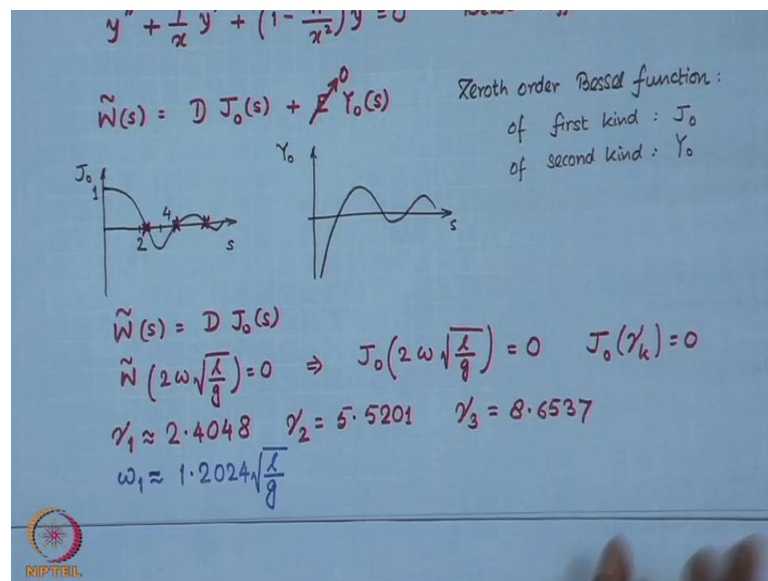 y'' + 1/x y' + (1 - n²/x²) y = 0
W̃(s) = D J₀(s) + E↗0 Y₀(s)
Zeroth order Bessel function :
of first kind : J₀
of second kind : Y₀
J₀
1
2
4
s
Y₀
s
W̃(s) = D J₀(s)
W̃(2ω√(l/g)) = 0 ⇒ J₀(2ω√(l/g)) = 0 J₀(γₖ) = 0
γ₁ ≈ 2.4048 γ₂ = 5.5201 γ₃ = 8.6537
ω₁ ≈ 1.2024 √(l/g)
NPTEL